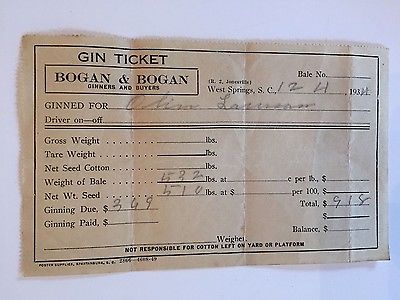 GIN TICKET
BOGAN & BOGAN
GINNERS AND BUYERS
(R. 2, Jonesville)
Bale No.
West Springs, S. C., 12 4 1934
GINNED FOR Olin Lawson
Driver on—off
Gross Weight lbs.
Tare Weight lbs.
Net Seed Cotton lbs.
Weight of Bale 532 lbs. at c per lb., $
Net Wt. Seed 510 lbs. at $ per 100, $
Ginning Due, $ 369 Total, $ 918
Ginning Paid, $
Balance, $
Weigher
NOT RESPONSIBLE FOR COTTON LEFT ON YARD OR PLATFORM
FOSTER SUPPLIES, SPARTANBURG, S. C.